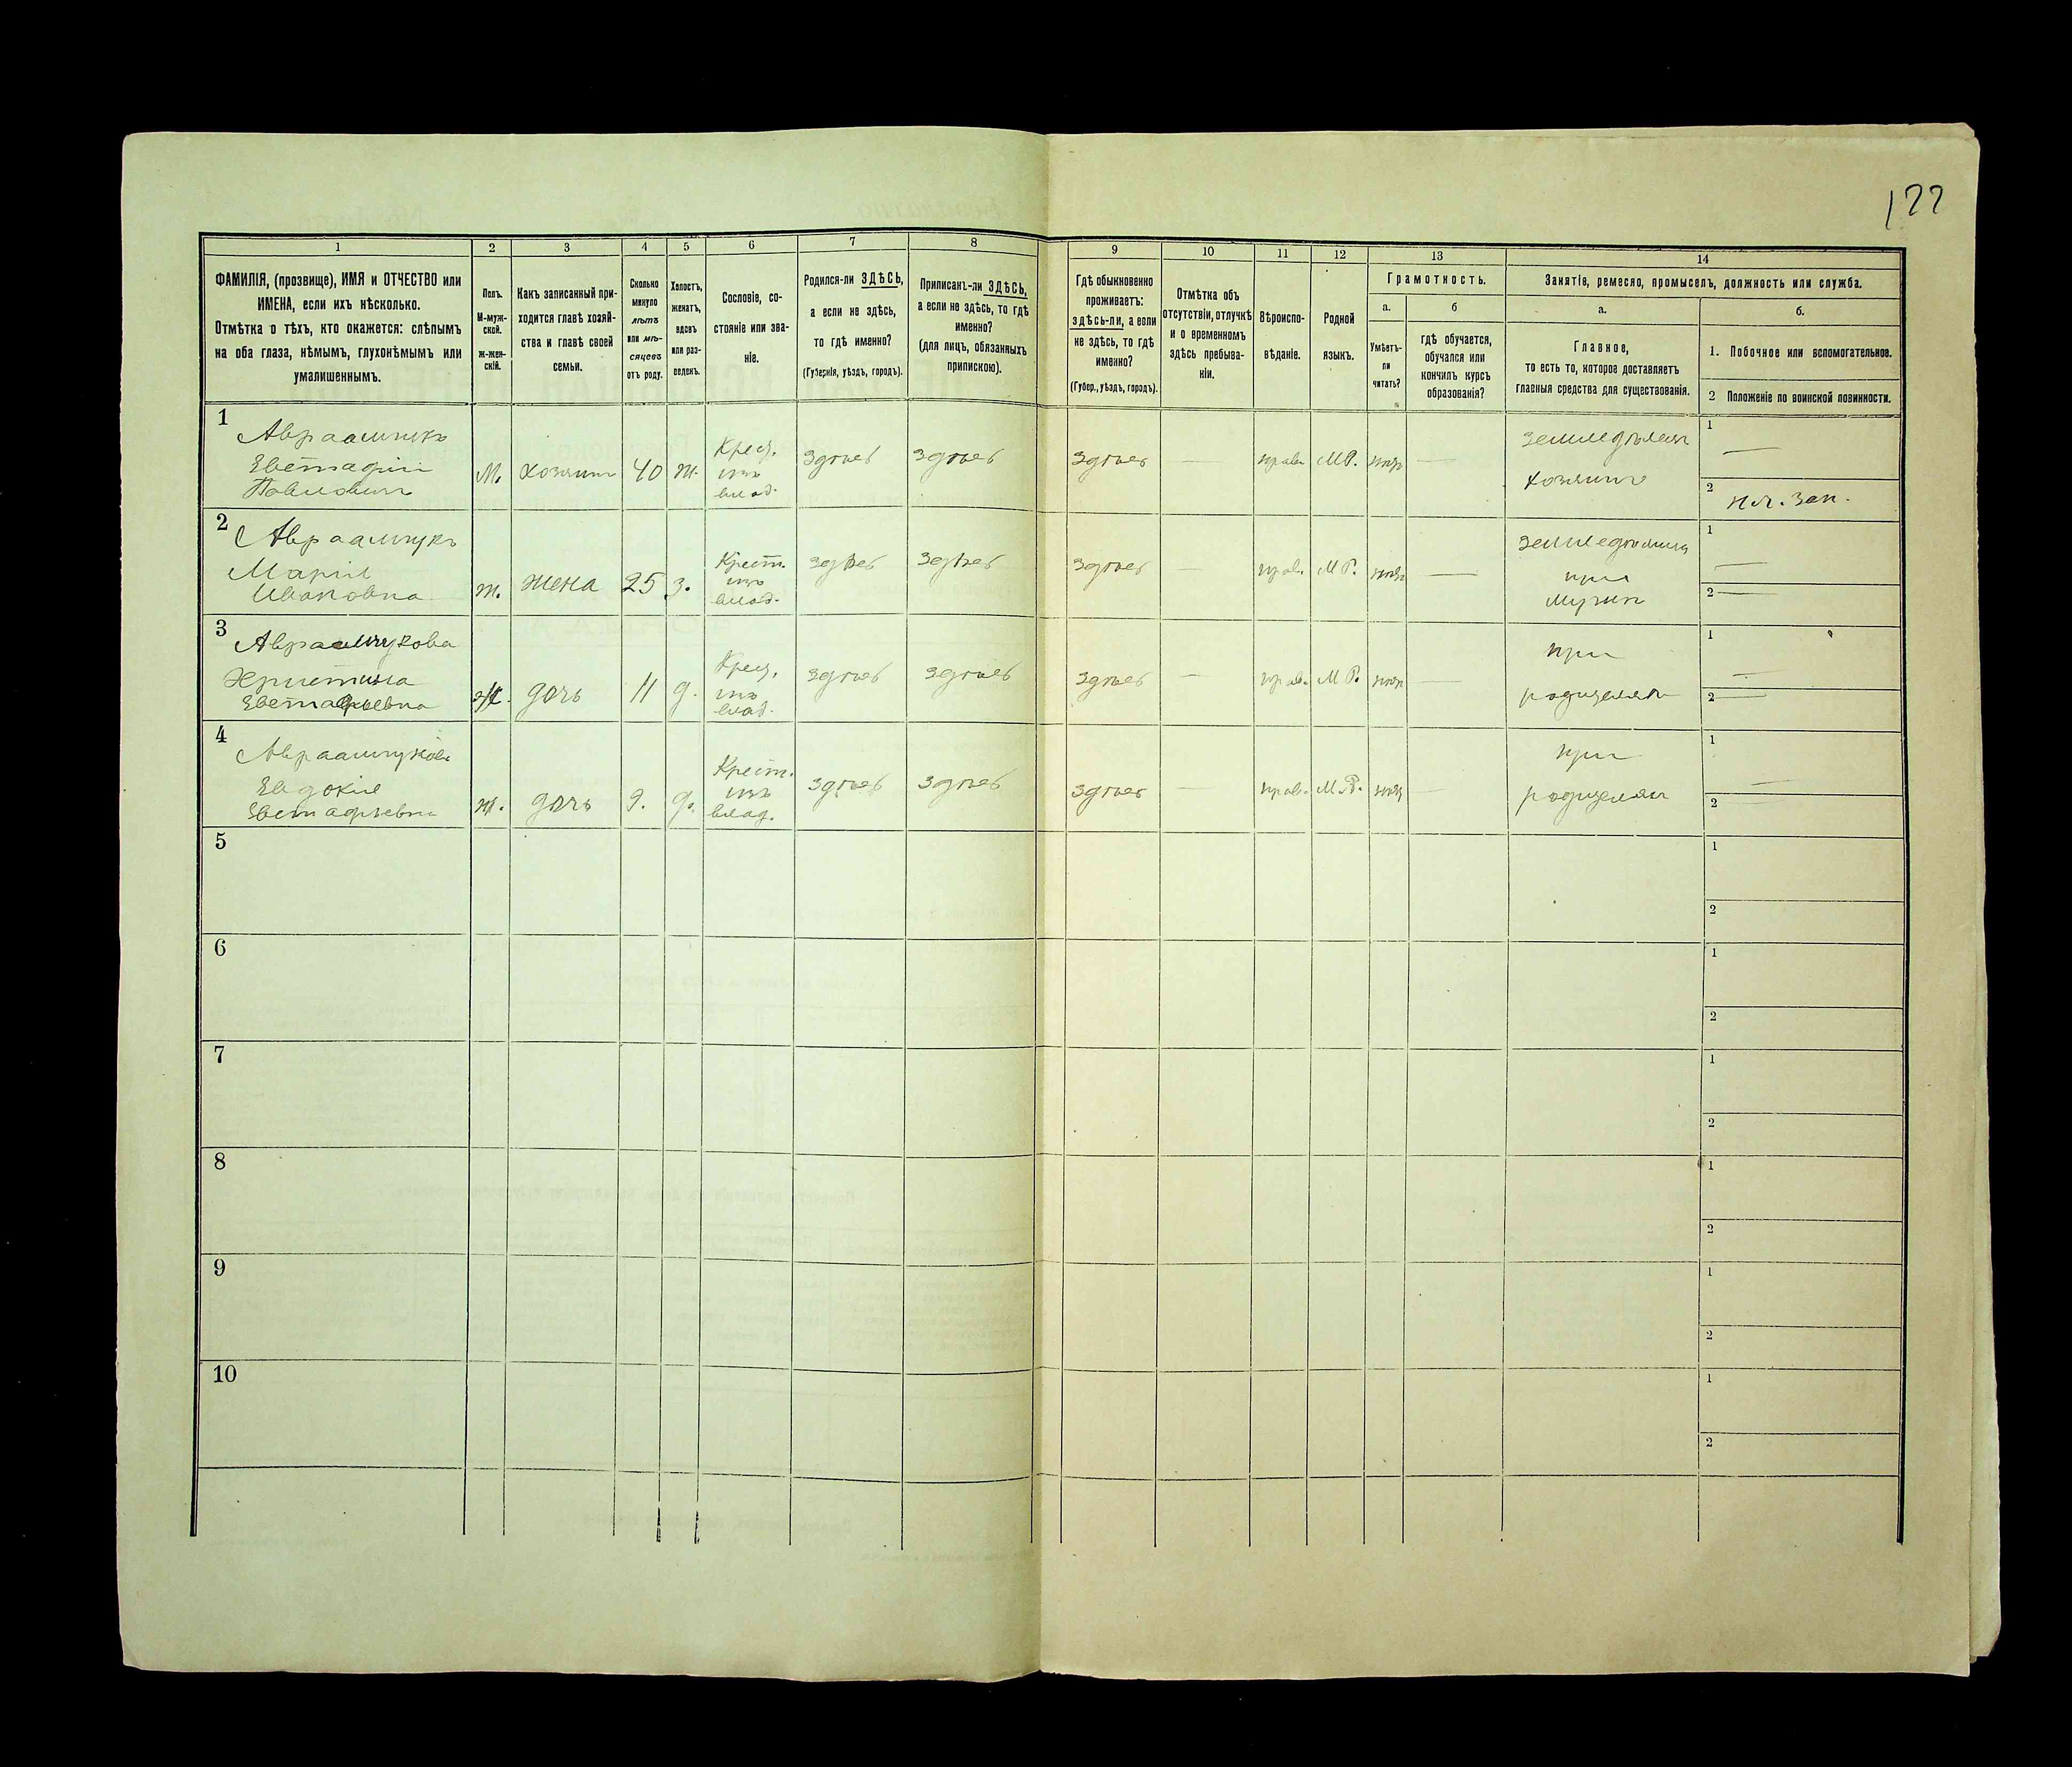 122
1
2
3
4
5
6
7
8
9
10
11
12
13
14
ФАМИЛІЯ, (прозвище), ИМЯ и ОТЧЕСТВО или
ИМЕНА, если ихъ нѣсколько.
Отмѣтка о тѣхъ, кто окажется: слѣпымъ
на оба глаза, нѣмымъ, глухонѣмымъ или
умалишеннымъ.
Полъ.
М-муж-
ской.
ж-жен-
скій.
Какъ записанный при-
ходится главѣ хозяй-
ства и главѣ своей
семьи.
Сколько
минуло
лѣтъ
или мѣ-
сяцевъ
отъ роду.
Холостъ,
женатъ,
вдовъ
или раз-
веденъ.
Сословіе, со-
стояніе или зва-
ніе.
Родился-ли ЗДѢСЬ,
а если не здѣсь,
то гдѣ именно?
(Губернія, уѣздъ, городъ).
Приписанъ-ли ЗДѢСЬ,
а если не здѣсь, то гдѣ
именно?
(для лицъ, обязанныхъ
припискою).
Гдѣ обыкновенно
проживаетъ:
здѣсь-ли, а если
не здѣсь, то гдѣ
именно?
(Губер., уѣздъ, городъ).
Отмѣтка объ
отсутствіи, отлучкѣ
и о временномъ
здѣсь пребыва-
ніи.
Вѣроиспо-
вѣданіе.
Родной
языкъ.
Грамотность.
а.
Умѣетъ-
ли
читать?
б
гдѣ обучается,
обучался или
кончилъ курсъ
образованія?
Занятіе, ремесло, промыселъ, должность или служба.
а.
Главное,
то есть то, которое доставляетъ
главныя средства для существованія.
б.
1. Побочное или вспомогательное.
2 Положеніе по воинской повинности.
1
Авраамчукъ
Евстафій
Павловичъ
М.
хозяинъ
40
ж.
Крест.
изъ
влад.
здѣсь
здѣсь
здѣсь
—
прав.
М Р.
—
земледѣлецъ
хозяинъ
1
—
2
2
Авраамчукъ
Марія
Ивановна
ж.
жена
25
з.
Крест.
изъ
влад.
здѣсь
здѣсь
здѣсь
—
прав.
М Р.
—
при
мужѣ
1
—
2 —
3
Авраамчукова
Христина
Евстафьевна
ж.
дочь
11
д.
Крест.
изъ
влад.
здѣсь
здѣсь
здѣсь
—
прав.
М Р.
—
при
родителяхъ
1
—
2 —
4
Авраамчукова
Евдокія
Евстафьевна
ж.
дочь
9.
д.
Крест.
изъ
влад.
здѣсь
здѣсь
здѣсь
—
прав.
М Р.
—
при
родителяхъ
1
—
2
5
1
2
6
1
2
7
1
2
8
1
2
9
1
2
10
1
2